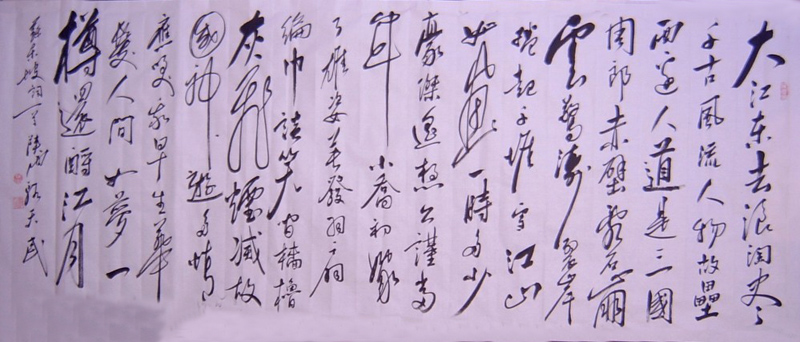 大江东去浪淘尽
千古風流人物故壘
西邊人道是三國
周郎赤壁亂石崩
雲驚濤裂岸
捲起千堆雪江山
如畫一時多少
豪傑遙想公謹當
年小喬初嫁
了雄姿英發羽扇
綸巾談笑間檣櫓
灰飛煙滅故
國神遊多情
應笑我早生華
髮人間如夢一
樽還酹江月
蘇東坡詞一首